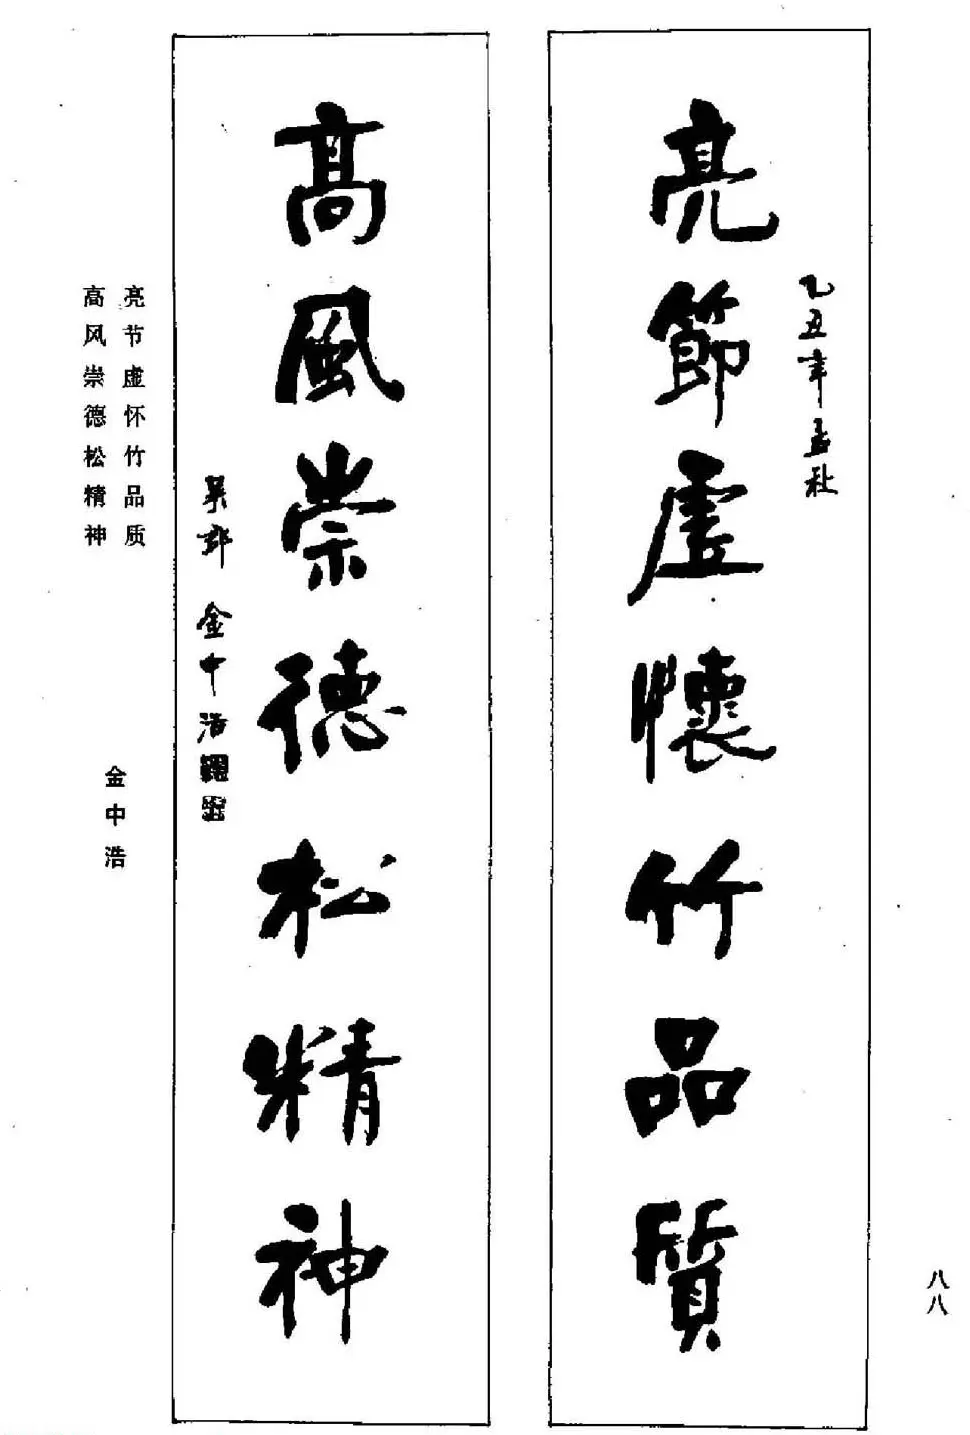 亮節虛懷竹品質
乙丑年孟秋
高風崇德松精神
吴郡 金中浩
亮节虚怀竹品质
高风崇德松精神
金中浩
八八